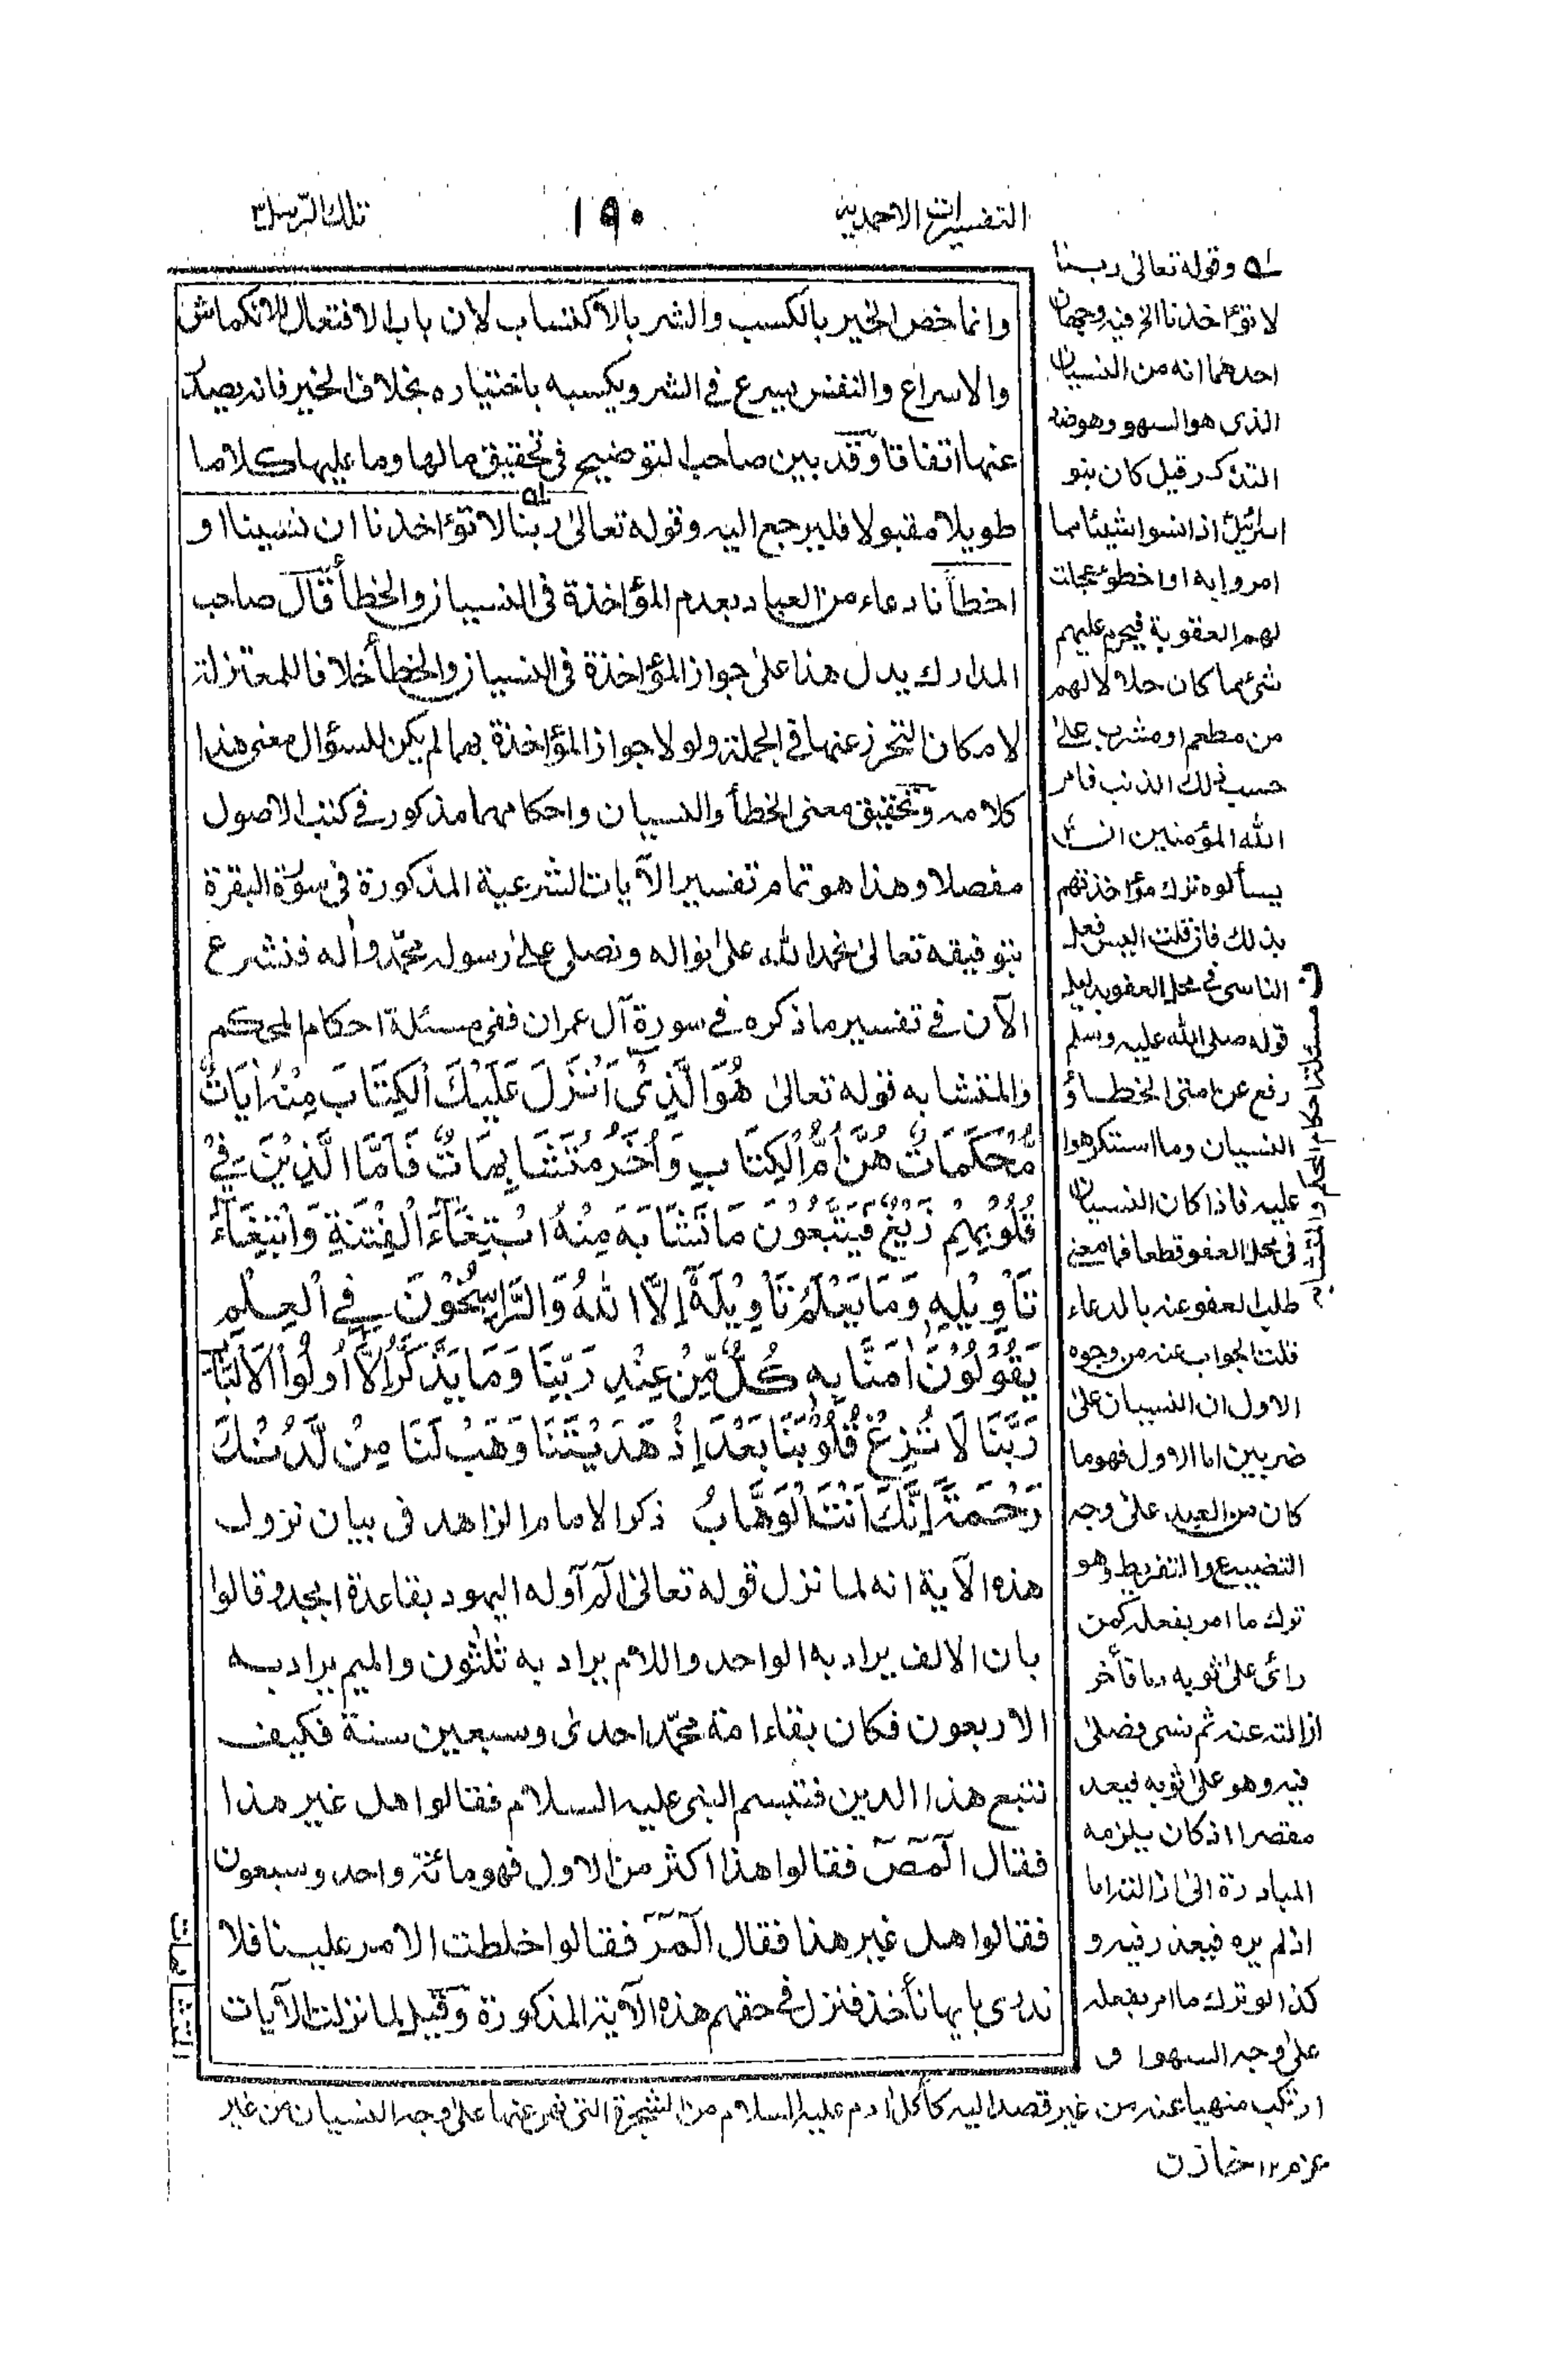 التفسيرات الاحمدية
١٩٠
تلك الرسل ٣
وانما خص الخير بالكسب والشر بالاكتساب لان باب الافتعال للانكماش
والاسراع والنفس يسرع فى الشر ويكسبه باختياره بخلاف الخير فانه يصدر
عنها اتفاقا وقد بين صاحب التوضيح فى تحقيق مالها وما عليها كلاما
طويلا مقبولا فليرجع اليه وقوله تعالى ربنا لا تؤاخذنا ان نسينا او
اخطأنا دعاء من العباد بعدم المؤاخذة فى النسيان والخطأ قال صاحب
المدارك يدل هذا على جواز المؤاخذة فى النسيان والخطأ خلافا للمعتزلة
لامكان التحرز عنهما فى الجملة ولولا جواز المؤاخذة بهما لم يكن للسؤال معنى هذا
كلامه وتحقيق معنى الخطأ والنسيان واحكامهما مذكور فى كتب الاصول
مفصلا وهذا هو تمام تفسير الآيات الشرعية المذكورة فى سورة البقرة
بتوفيقه تعالى نحمد الله على نواله ونصلى على رسوله محمّد وآله فنشرع
الآن فى تفسير ما ذكره فى سورة آل عمران ففى مسئلة احكام المحكم
والمتشابه قوله تعالى هُوَ الَّذِىْ اَنْزَلَ عَلَيْكَ الْكِتَابَ مِنْهُ اٰيَاتٌ
مُّحْكَمَاتٌ هُنَّ اُمُّ الْكِتَابِ وَاُخَرُ مُتَشَابِهَاتٌ فَاَمَّا الَّذِيْنَ فِيْ
قُلُوْبِهِمْ زَيْغٌ فَيَتَّبِعُوْنَ مَا تَشَابَهَ مِنْهُ ابْتِغَآءَ الْفِتْنَةِ وَابْتِغَآءَ
تَأْوِيْلِهٖ وَمَا يَعْلَمُ تَأْوِيْلَهٗ اِلَّا اللهُ وَالرَّاسِخُوْنَ فِي الْعِلْمِ
يَقُوْلُوْنَ اٰمَنَّا بِهٖ كُلٌّ مِّنْ عِنْدِ رَبِّنَا وَمَا يَذَّكَّرُ اِلَّا اُولُوا الْاَلْبَابِ
رَبَّنَا لَا تُزِغْ قُلُوْبَنَا بَعْدَ اِذْ هَدَيْتَنَا وَهَبْ لَنَا مِنْ لَّدُنْكَ
رَحْمَةً اِنَّكَ اَنْتَ الْوَهَّابُ ذكر الامام الزاهد فى بيان نزول
هذه الآية انه لما نزل قوله تعالى الٓمٓ اوله اليهود بقاعدة ابجد وقالوا
بان الالف يراد به الواحد واللام يراد به ثلثون والميم يراد به
الاربعون فكان بقاء امة محمّد احدى وسبعين سنة فكيف
نتبع هذا الدين فتبسم النبى عليه السلام فقالوا هل غير هذا
فقال الٓمٓصٓ فقالوا هذا اكثر من الاول فهو مائة واحد وسبعون
فقالوا هل غير هذا فقال الٓمٓرٓ فقالوا خلطت الامر علينا فلا
ندرى بايها نأخذ فنزل فى حقهم هذه الآية المذكورة وقيل لما نزلت الآيات
لـه وقوله تعالى ربنا
لا تؤاخذنا الخ فيه وجهان
احدهما انه من النسيان
الذى هو السهو وهو ضد
التذكر قيل كان بنو
اسرائيل اذا نسوا شيئا مما
امروا به او اخطؤ عجلت
لهم العقوبة فيحرم عليهم
شئ مما كان حلالا لهم
من مطعم او مشرب على
حسب ذلك الذنب فامر
الله المؤمنين ان
يسألوه ترك مؤاخذتهم
بذلك فان قلت اليس فعل
الناسى فى محل العفو بدليل
قوله صلى الله عليه وسلم
رفع عن امتى الخطاؤ
النسيان وما استكرهوا
عليه فاذا كان النسيان
فى محل العفو قطعا فما معنى
طلب العفو عنه بالدعاء
قلت الجواب عنه من وجوه
الاول ان النسيان على
ضربين اما الاول فهو ما
كان من العبد على وجه
التضييع والتفريط وهو
ترك ما امر بفعله كمن
رأى على ثوبه دما فأخر
ازالته عنه ثم نسى فصلى
فيه وهو على ثوبه فيعد
مقصرا اذ كان يلزمه
المبادرة الى ازالته اما
اذ لم يره فيعذر فيه و
كذا لو ترك ما امر بفعله
على وجه السهو او
ارتكب منهيا عنه من غير قصد اليه كأكل ادم عليه السلام من الشجرة التى نهى عنها على وجه النسيان من غير
عزم ١٢ خازن
مسئلة احكام المحكم والمتشابه
المتشابهات